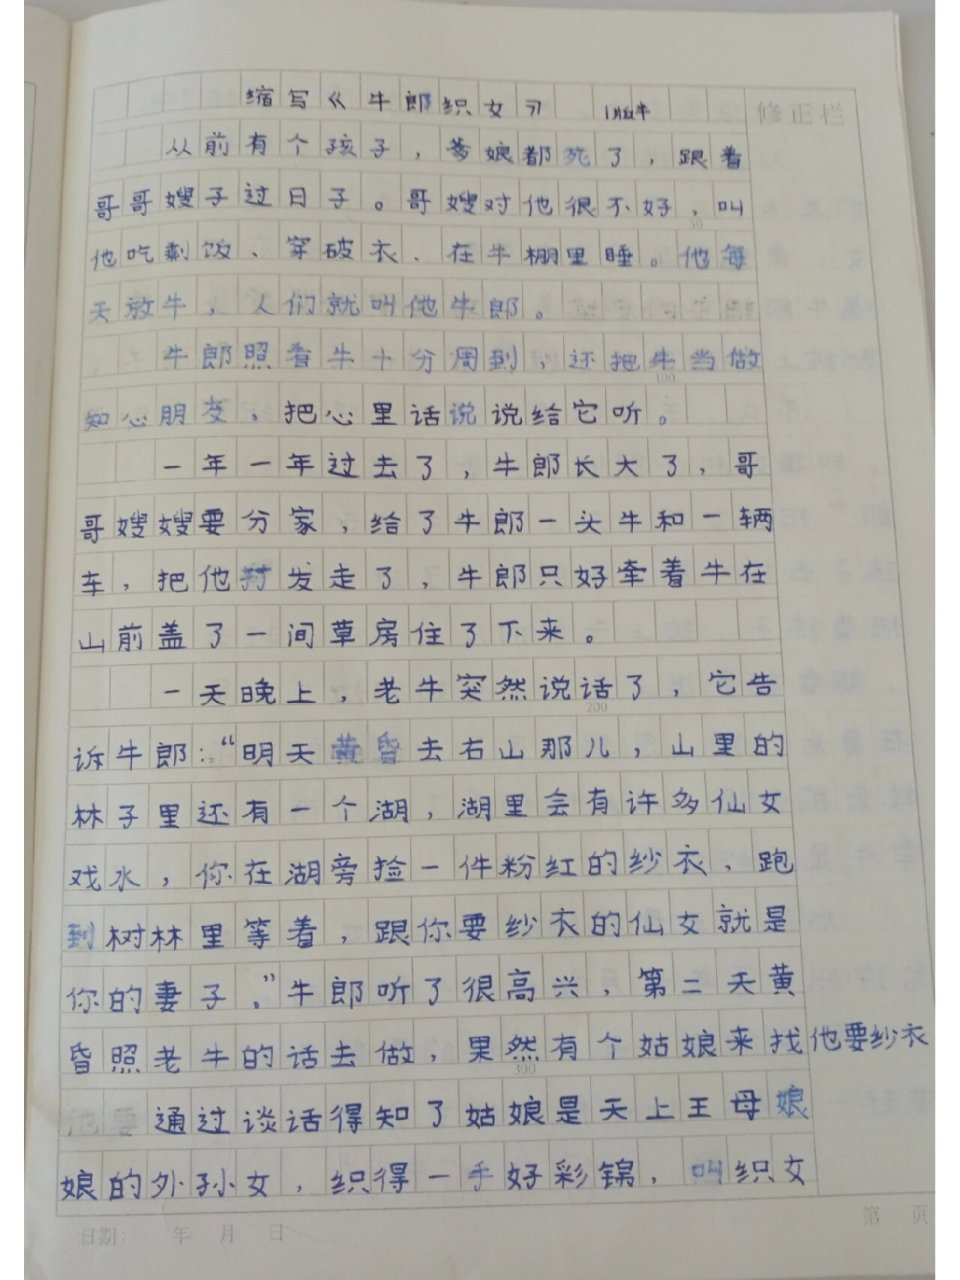 缩写《牛郎织女》
修正栏
从前有个孩子，爹娘都死了，跟着
哥哥嫂子过日子。哥嫂对他很不好，叫
50
他吃剩饭、穿破衣、在牛棚里睡。他每
天放牛，人们就叫他牛郎。
牛郎照看牛十分周到，还把牛当做
100
知心朋友，把心里话说说给它听。
一年一年过去了，牛郎长大了，哥
哥嫂嫂要分家，给了牛郎一头牛和一辆
车，把他打发走了，牛郎只好牵着牛在
山前盖了一间草房住了下来。
一天晚上，老牛突然说话了，它告
200
诉牛郎：“明天黄昏去右山那儿，山里的
林子里还有一个湖，湖里会有许多仙女
戏水，你在湖旁捡一件粉红的纱衣，跑
到树林里等着，跟你要纱衣的仙女就是
你的妻子。”牛郎听了很高兴，第二天黄
昏照老牛的话去做，果然有个姑娘来找他要纱衣
300
通过谈话得知了姑娘是天上王母娘
娘的外孙女，织得一手好彩锦，叫织女
日期： 年 月 日
第 页